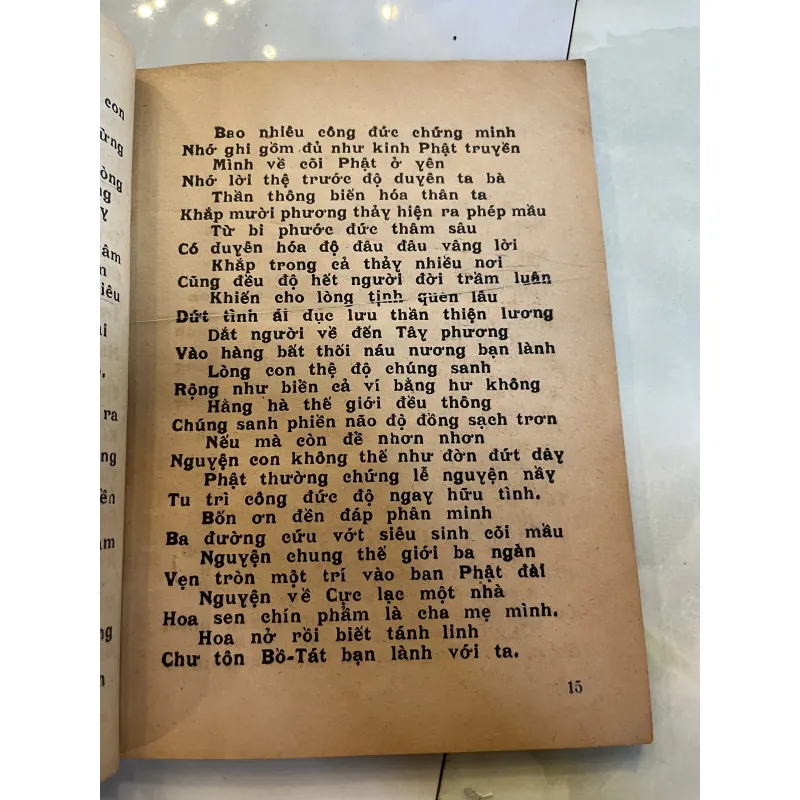 con
ừng
òng
g
Y
âm
n
iêu
i
.
ra
ng
ền
am
ng
n
Bao nhiêu công đức chứng minh
Nhớ ghi gồm đủ như kinh Phật truyền
Mình về cõi Phật ở yên
Nhớ lời thệ trước độ duyên ta bà
Thần thông biến hóa thân ta
Khắp mười phương thảy hiện ra phép mầu
Từ bi phước đức thâm sâu
Có duyên hóa độ đâu đâu vâng lời
Khắp trong cả thảy nhiều nơi
Cũng đều độ hết người đời trầm luân
Khiến cho lòng tịnh quên lâu
Dứt tình ái dục lưu thần thiện lương
Dắt người về đến Tây phương
Vào hàng bất thối náu nương bạn lành
Lòng con thệ độ chúng sanh
Rộng như biển cả ví bằng hư không
Hằng hà thế giới đều thông
Chúng sanh phiền não độ đồng sạch trơn
Nếu mà còn đề nhơn nhơn
Nguyện con không thế như đờn đứt dây
Phật thường chứng lễ nguyện nầy
Tu trì công đức độ ngay hữu tình.
Bốn ơn đền đáp phân minh
Ba đường cứu vớt siêu sinh cõi mầu
Nguyện chung thế giới ba ngàn
Vẹn tròn một trí vào ban Phật đài
Nguyện về Cực lạc một nhà
Hoa sen chín phẩm là cha mẹ mình.
Hoa nở rồi biết tánh linh
Chư tôn Bồ-Tát bạn lành với ta.
15